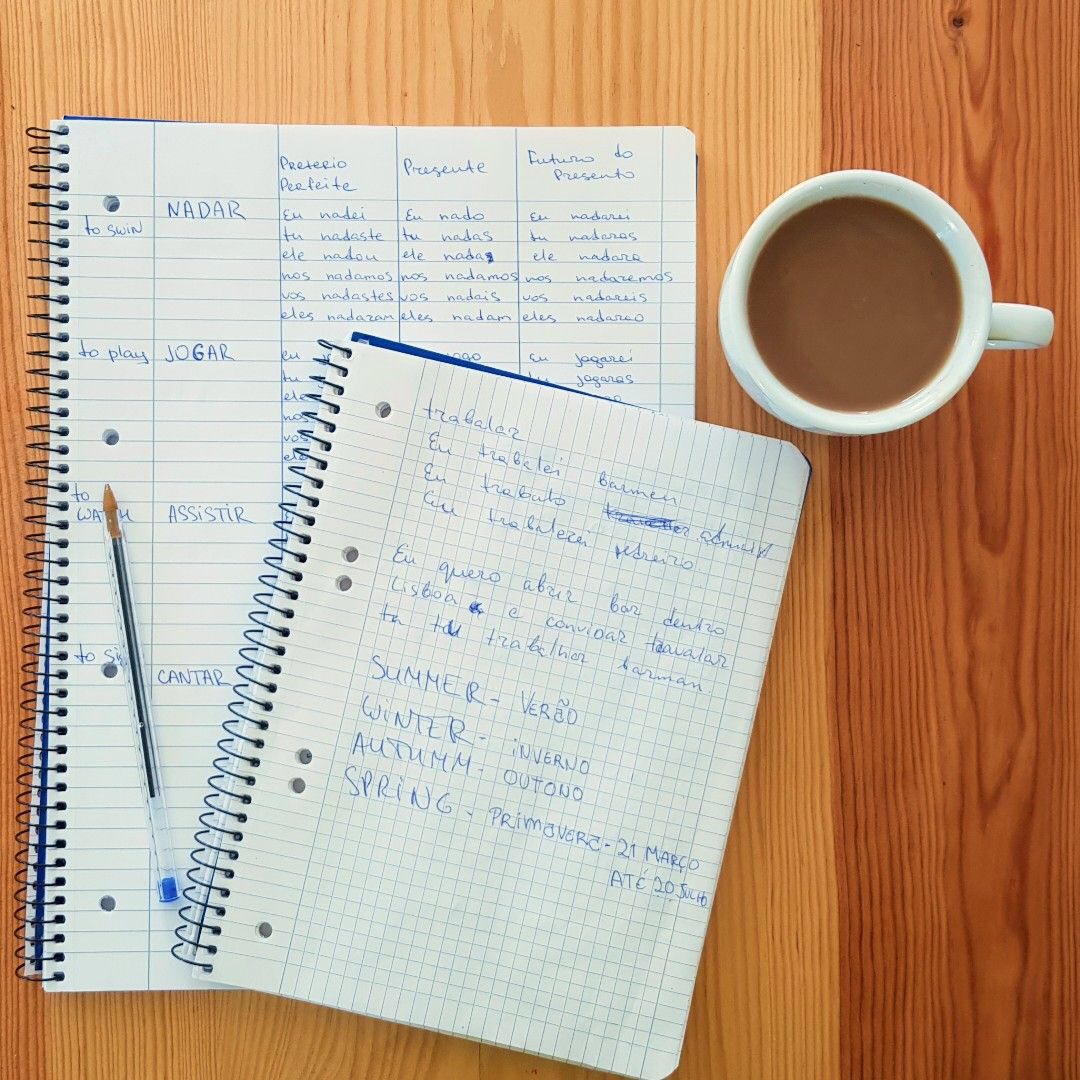 Preterio Presente Futuro do
Perfeite Presento
NADAR
to swin
Eu nadei Eu nado Eu nadarei
tu nadaste tu nadas tu nadaras
ele nadou ele nada ele nadara
nos nadamos nos nadamos nos nadaremos
vos nadastes vos nadais vos nadareis
eles nadaram eles nadam eles nadarao
to play JOGAR eu Eu jogarei
tu tu jogaras
ele
nos
vos
to
WATCH ASSISTIR
to
CANTAR
trabalar
Eu trabalei barmen
Eu trabalo
Eu trabalerei pedreiro
Eu quero abrir bar dentro
Lisboa e convidar
tu trabalhar barman
SUMMER - VERÃO
WINTER - INVERNO
AUTUMM - OUTONO
SPRING - PRIMAVERA - 21 MARÇO
ATÉ 20 JULHO